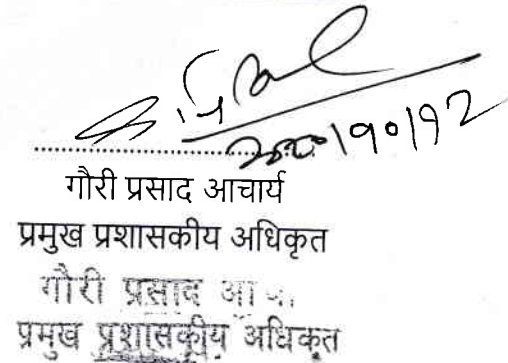 २०८०।१०।१२
गौरी प्रसाद आचार्य
प्रमुख प्रशासकीय अधिकृत
गौरी प्रसाद
प्रमुख प्रशासकीय अधिकृत